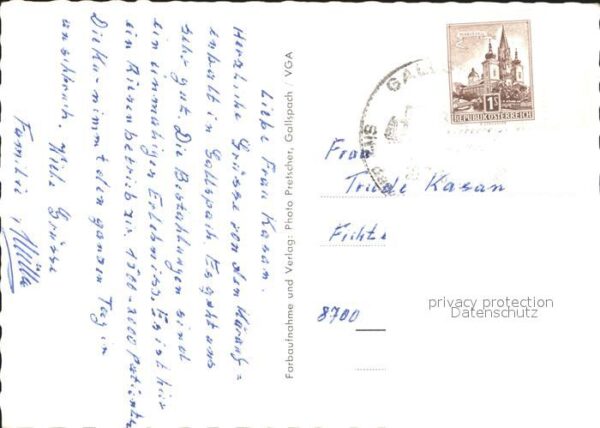 Liebe Frau Kasan.
Herzliche Grüsse von dem Kurauf=
enthalt in Gallspach. Es geht uns
sehr gut. Die Bestrahlungen sind
ein einmaliges Erlebnis. Es ist hier
ein Riesenbetrieb zir. 1500-2000 Patienten
Die Kur nimmt den ganzen Tag in
anspruch. Viele Grüsse
Familie
Farbaufnahme und Verlag: Photo Pretscher, Gallspach / VGA
GALL
MARIAZELL
1S
REPUBLIK ÖSTERREICH
Frau
Trude Kasan
Fichte
8700
privacy protection
Datenschutz